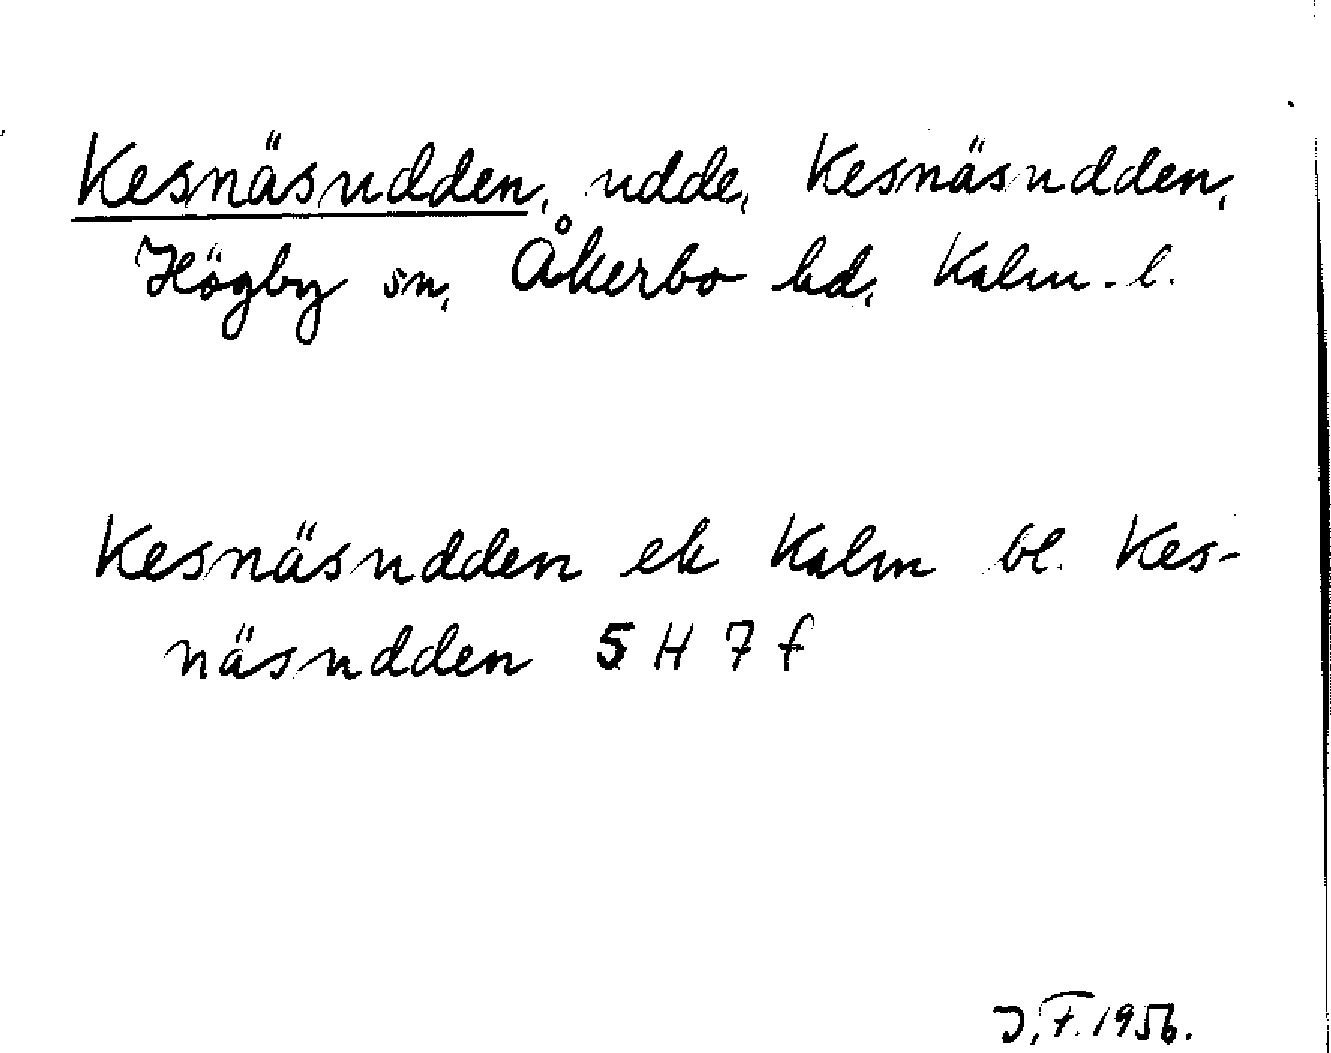 Kesnäsudden, udde, Kesnäsudden,
Högby sn, Åkerbo hd, Kalm. l.
Kesnäsudden ek Kalm bl. Kes-
näsudden 5 H 7 f
J.F. 1956.